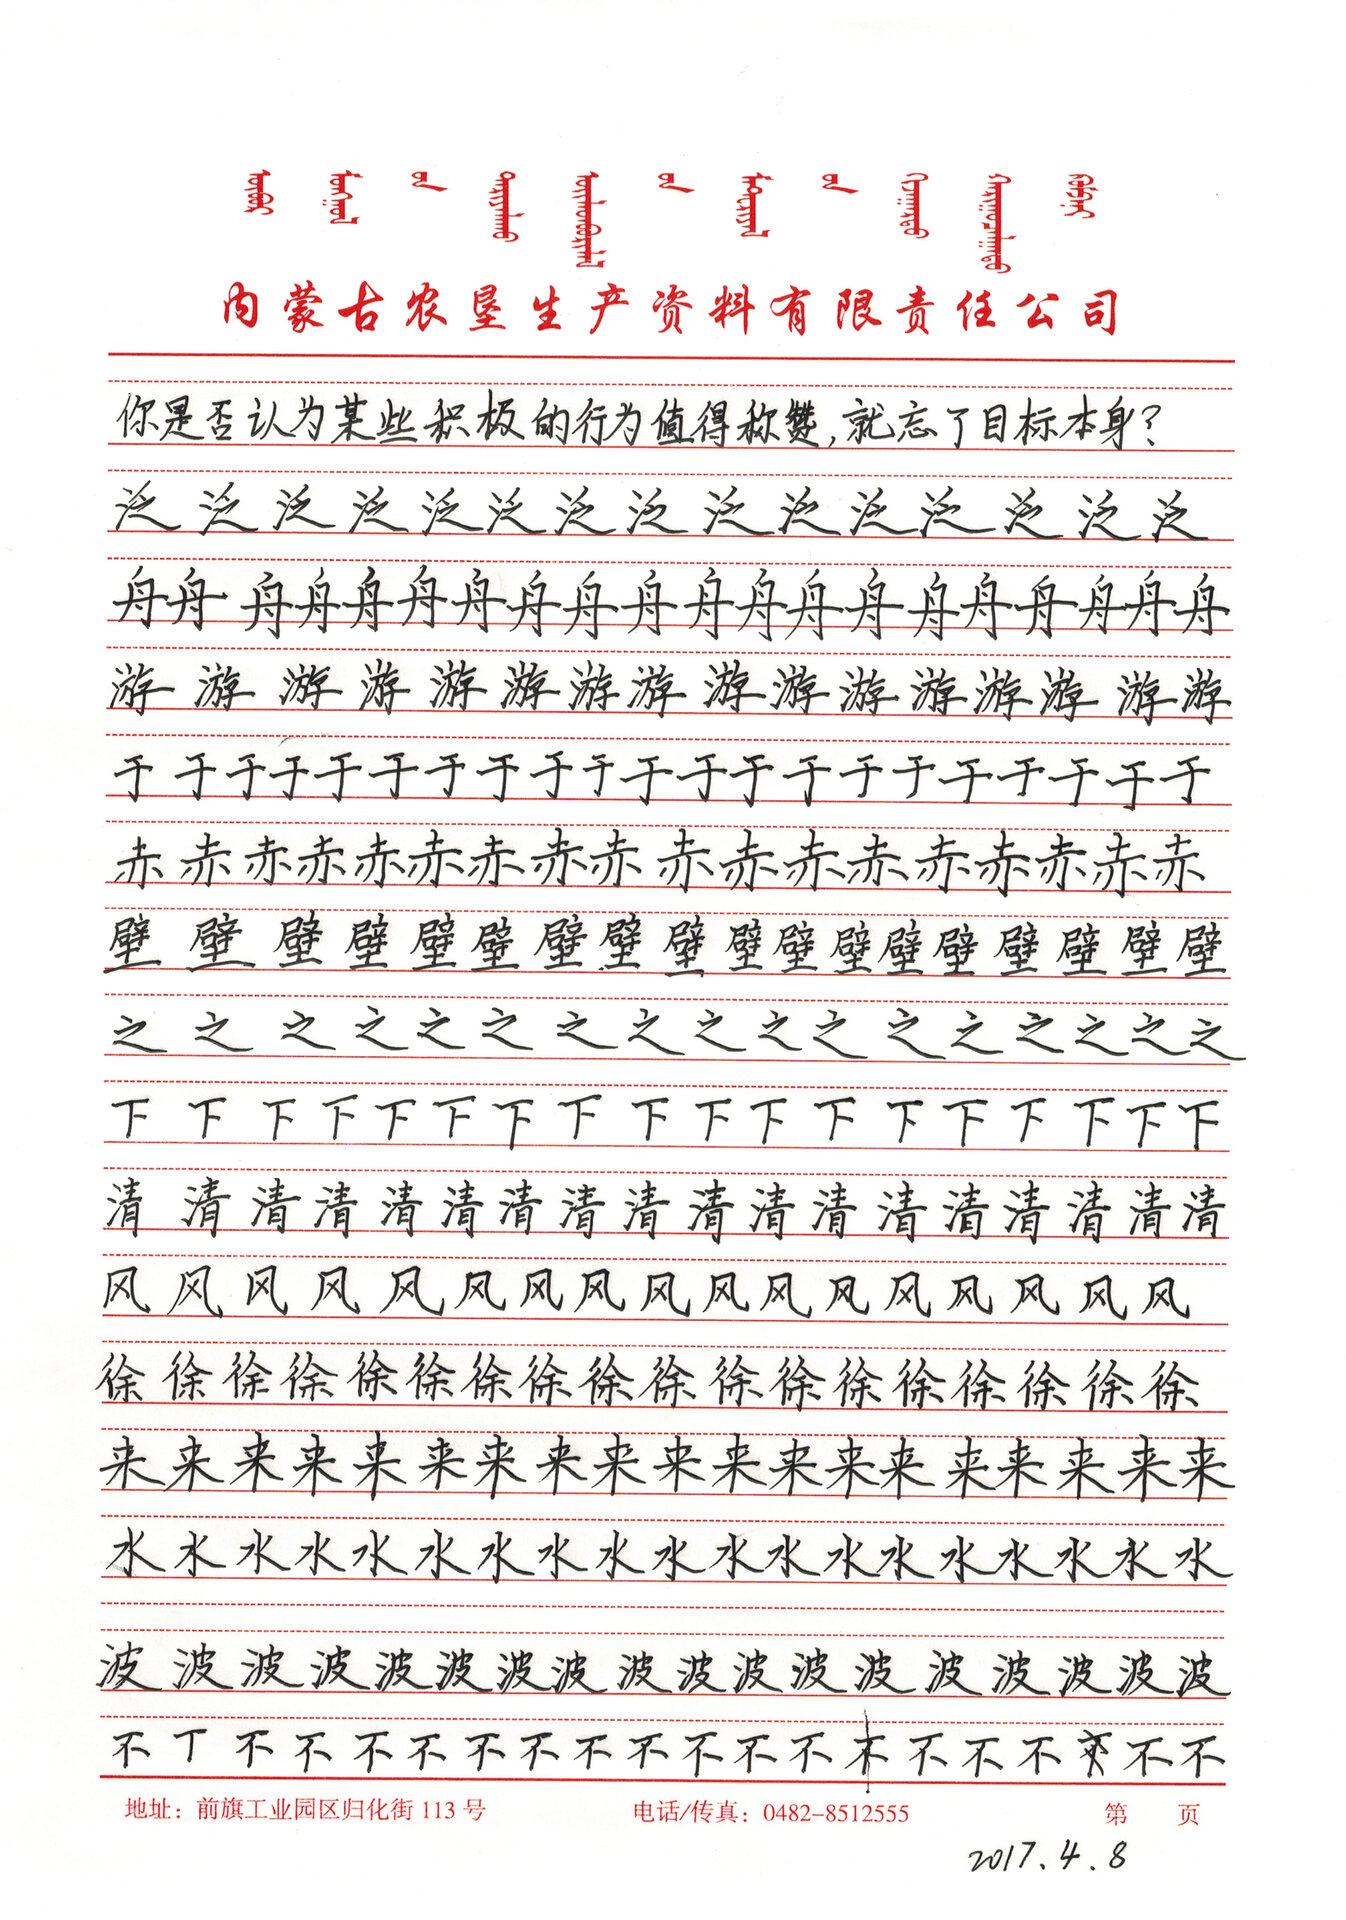 内蒙古农垦生产资料有限责任公司
你是否认为某些积极的行为值得称赞,就忘了目标本身?
泛泛泛泛泛泛泛泛泛泛泛泛泛泛泛
舟舟舟舟舟舟舟舟舟舟舟舟舟舟舟舟舟舟舟舟
游游游游游游游游游游游游游游游游
于于于于于于于于于于于于于于于于于于于于于
赤赤赤赤赤赤赤赤赤赤赤赤赤赤赤赤赤赤
壁壁壁壁壁壁壁壁壁壁壁壁壁壁壁壁壁壁
之之之之之之之之之之之之之之之之之
下下下下下下下下下下下下下下下下下下
清清清清清清清清清清清清清清清清清清
风风风风风风风风风风风风风风风风风
徐徐徐徐徐徐徐徐徐徐徐徐徐徐徐徐徐徐
来来来来来来来来来来来来来来来来来来来
水水水水水水水水水水水水水水水水水水水
波波波波波波波波波波波波波波波波波波
不丅不不不不不不不不不不不不不不不不不
地址：前旗工业园区归化街 113 号 电话/传真：0482-8512555 第 页
2017.4.8